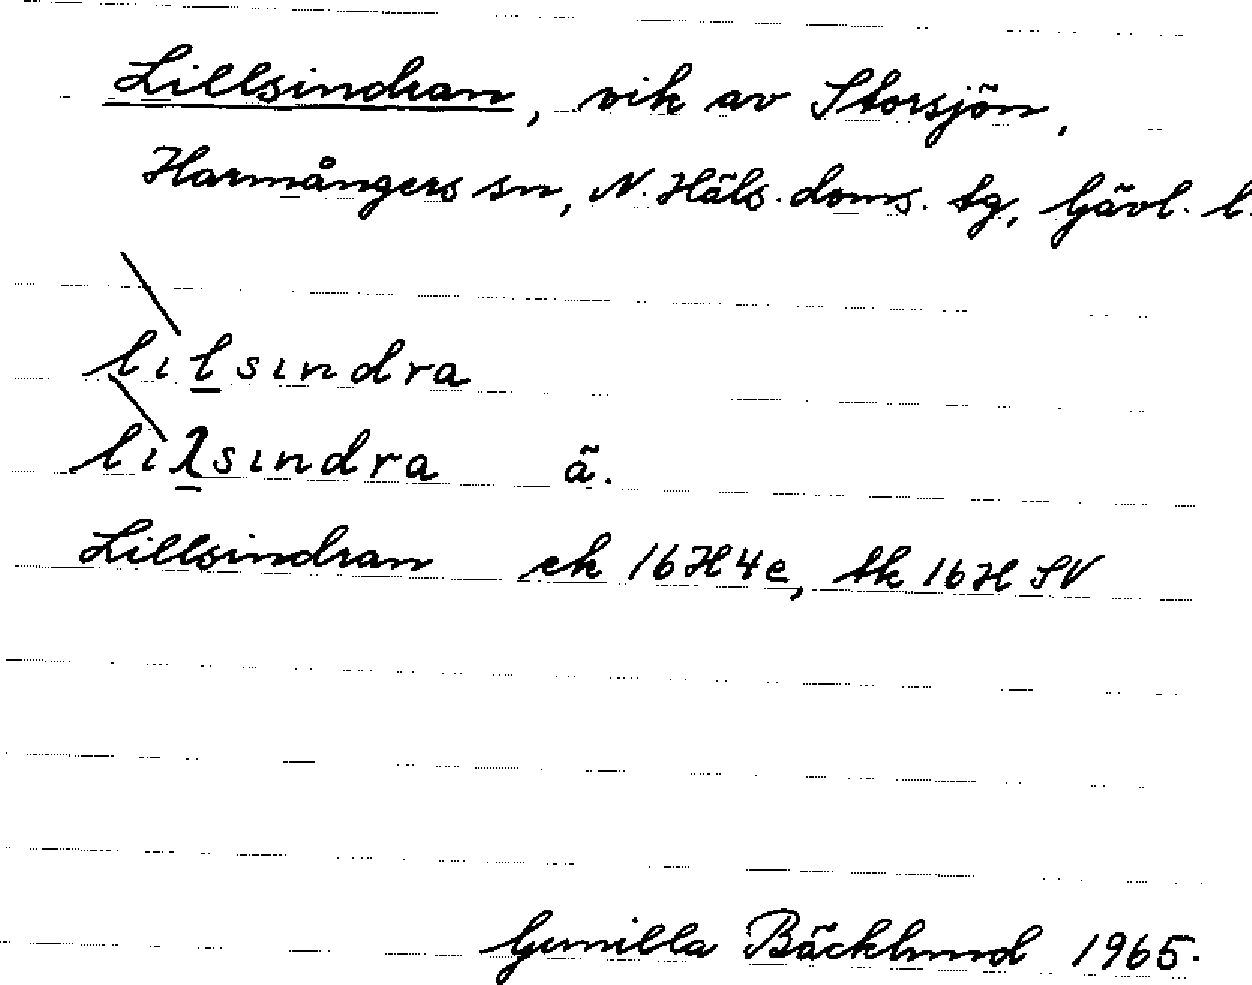 Lillsindran, vik av Storsjön,
Harmångers sn, N. Häls. doms. tg, Gävl. l.
lìl̲sındra
lìλ̲sındra ä.
Lillsindran ek 16H4e, tk 16H SV
Gunilla Bäcklund 1965.